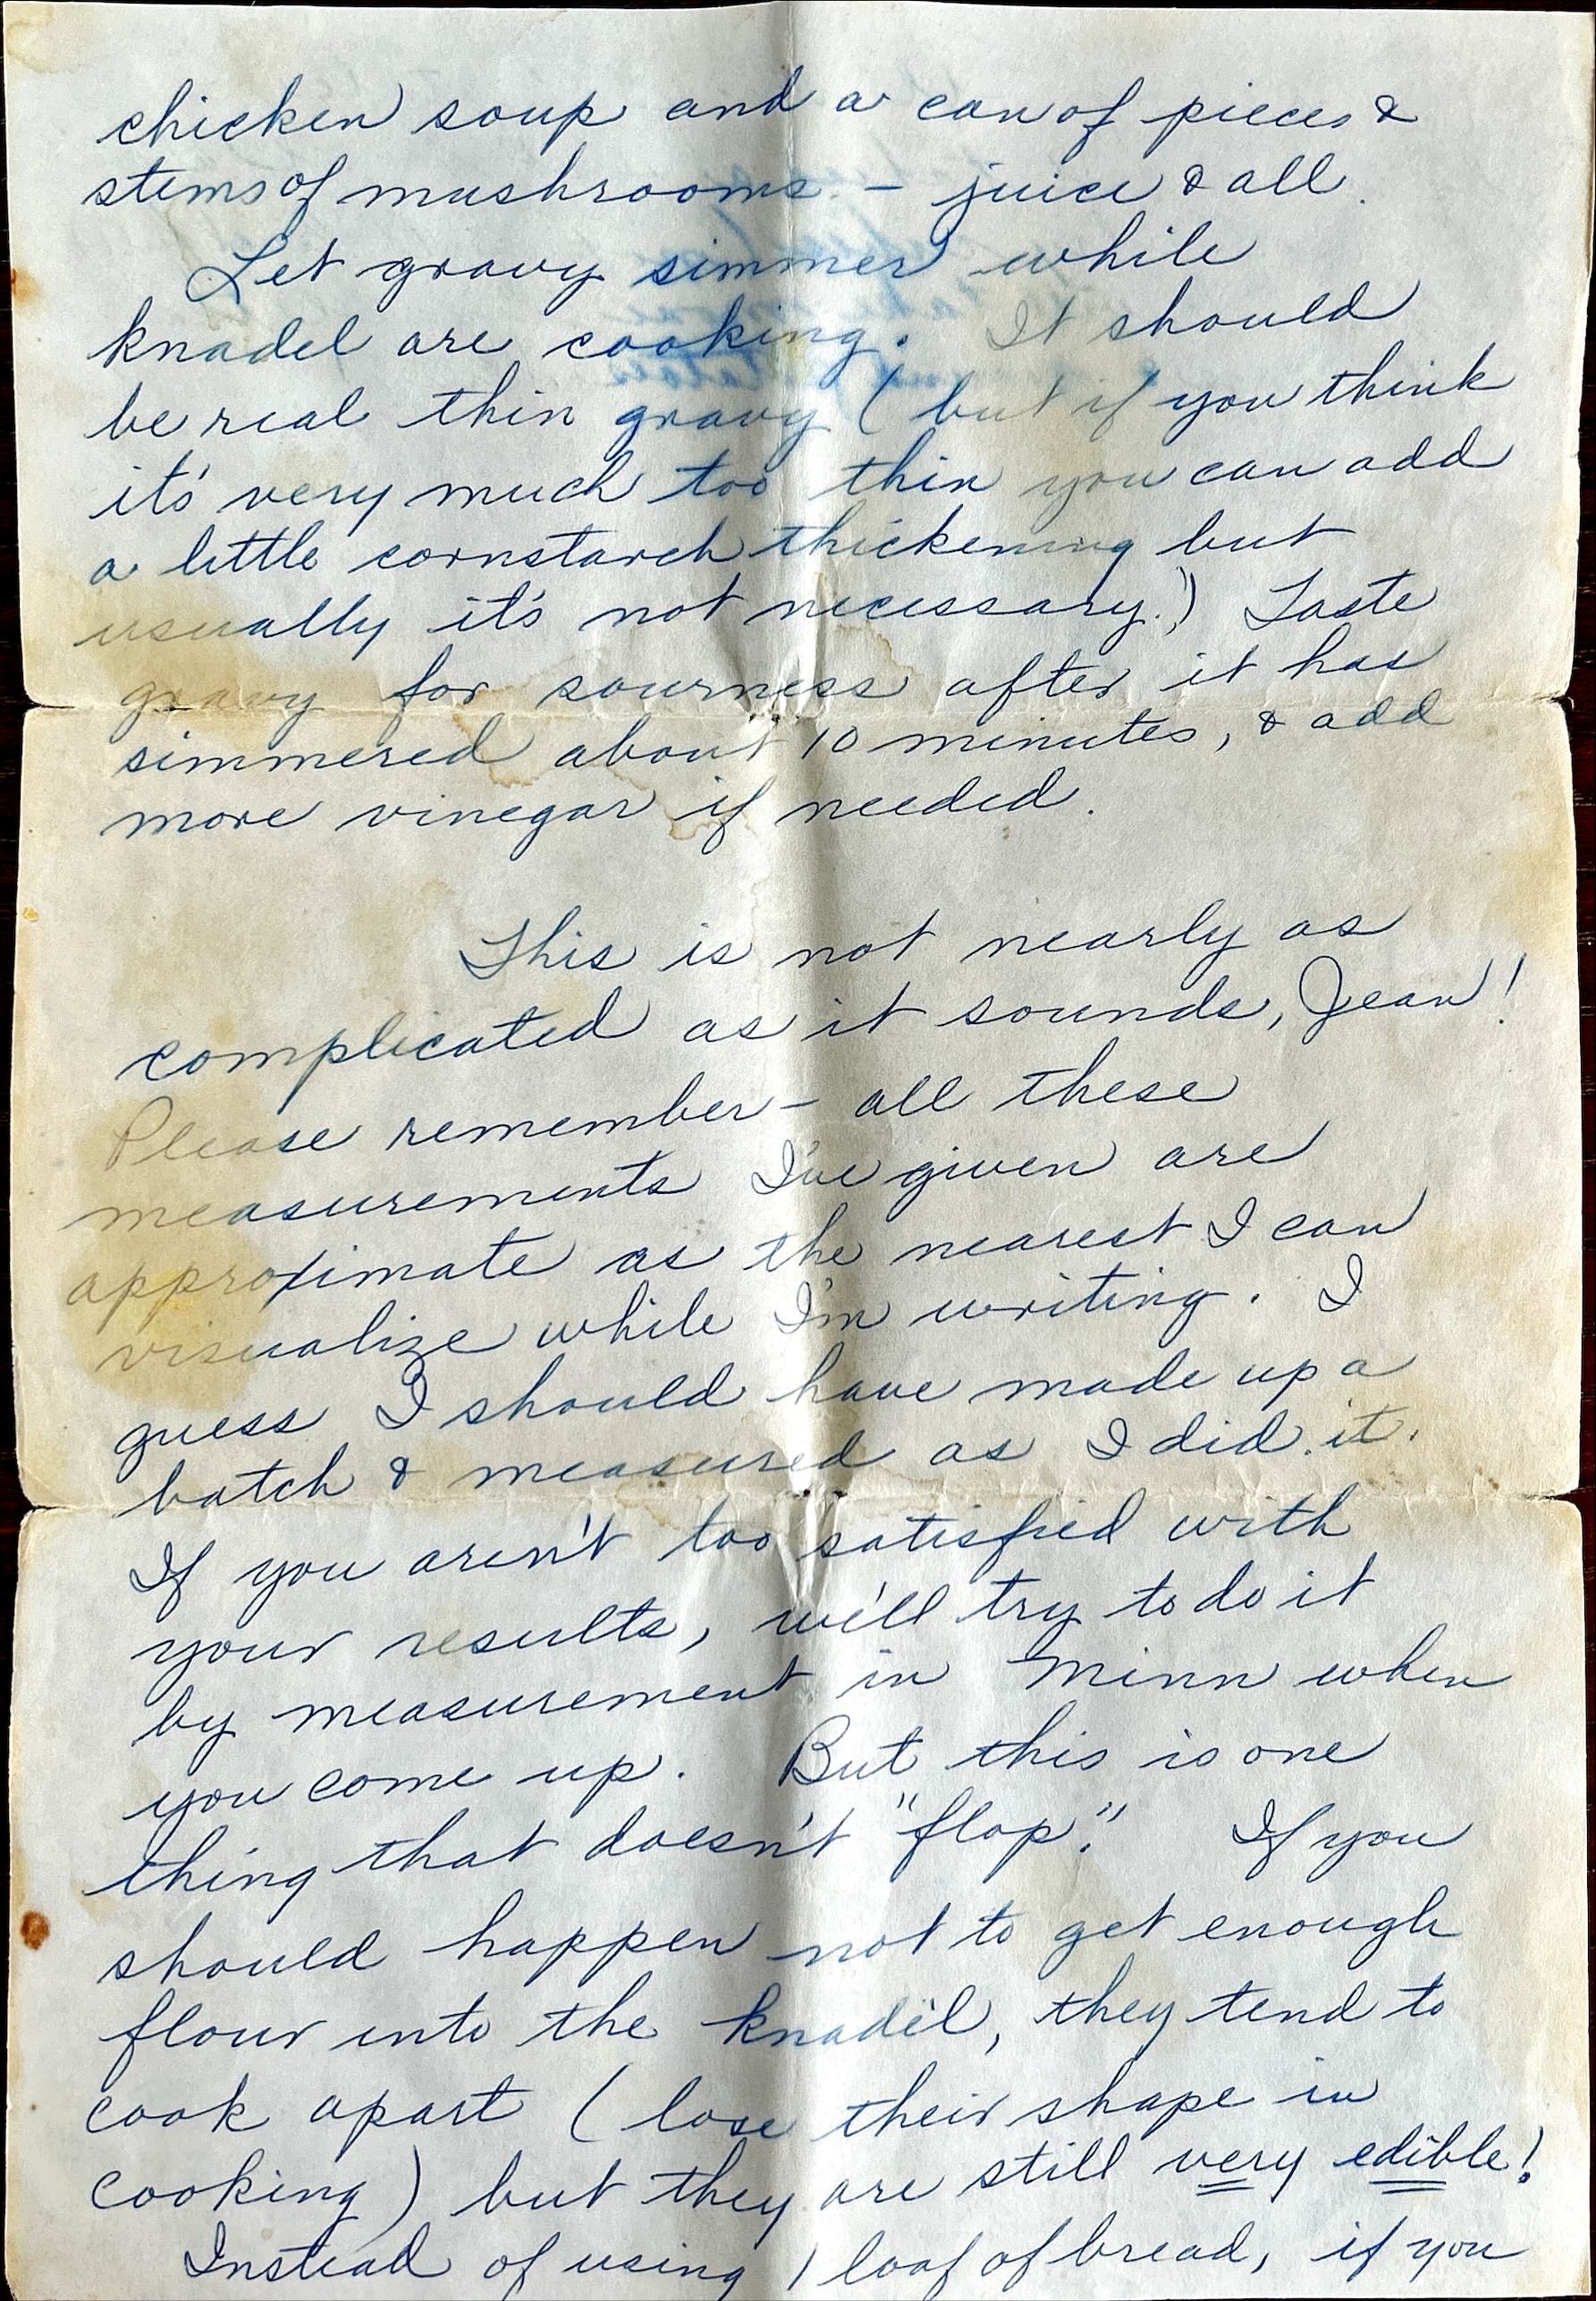 chicken soup and a can of pieces &
stems of mushrooms - juice & all.
Let gravy simmer while
knadel are cooking. It should
be real thin gravy (but if you think
it's very much too thin you can add
a little cornstarch thickening but
usually it's not necessary.) Taste
gravy for sourness after it has
simmered about 10 minutes, & add
more vinegar if needed.
This is not nearly as
complicated as it sounds, Jean!
Please remember - all these
measurements I've given are
approximate as the nearest I can
visualize while I'm writing. I
guess I should have made up a
batch & measured as I did it.
If you aren't too satisfied with
your results, we'll try to do it
by measurement in Minn when
you come up. But this is one
thing that doesn't "flop". If you
should happen not to get enough
flour into the knadel, they tend to
cook apart (lose their shape in
cooking) but they are still very edible!
Instead of using 1 loaf of bread, if you